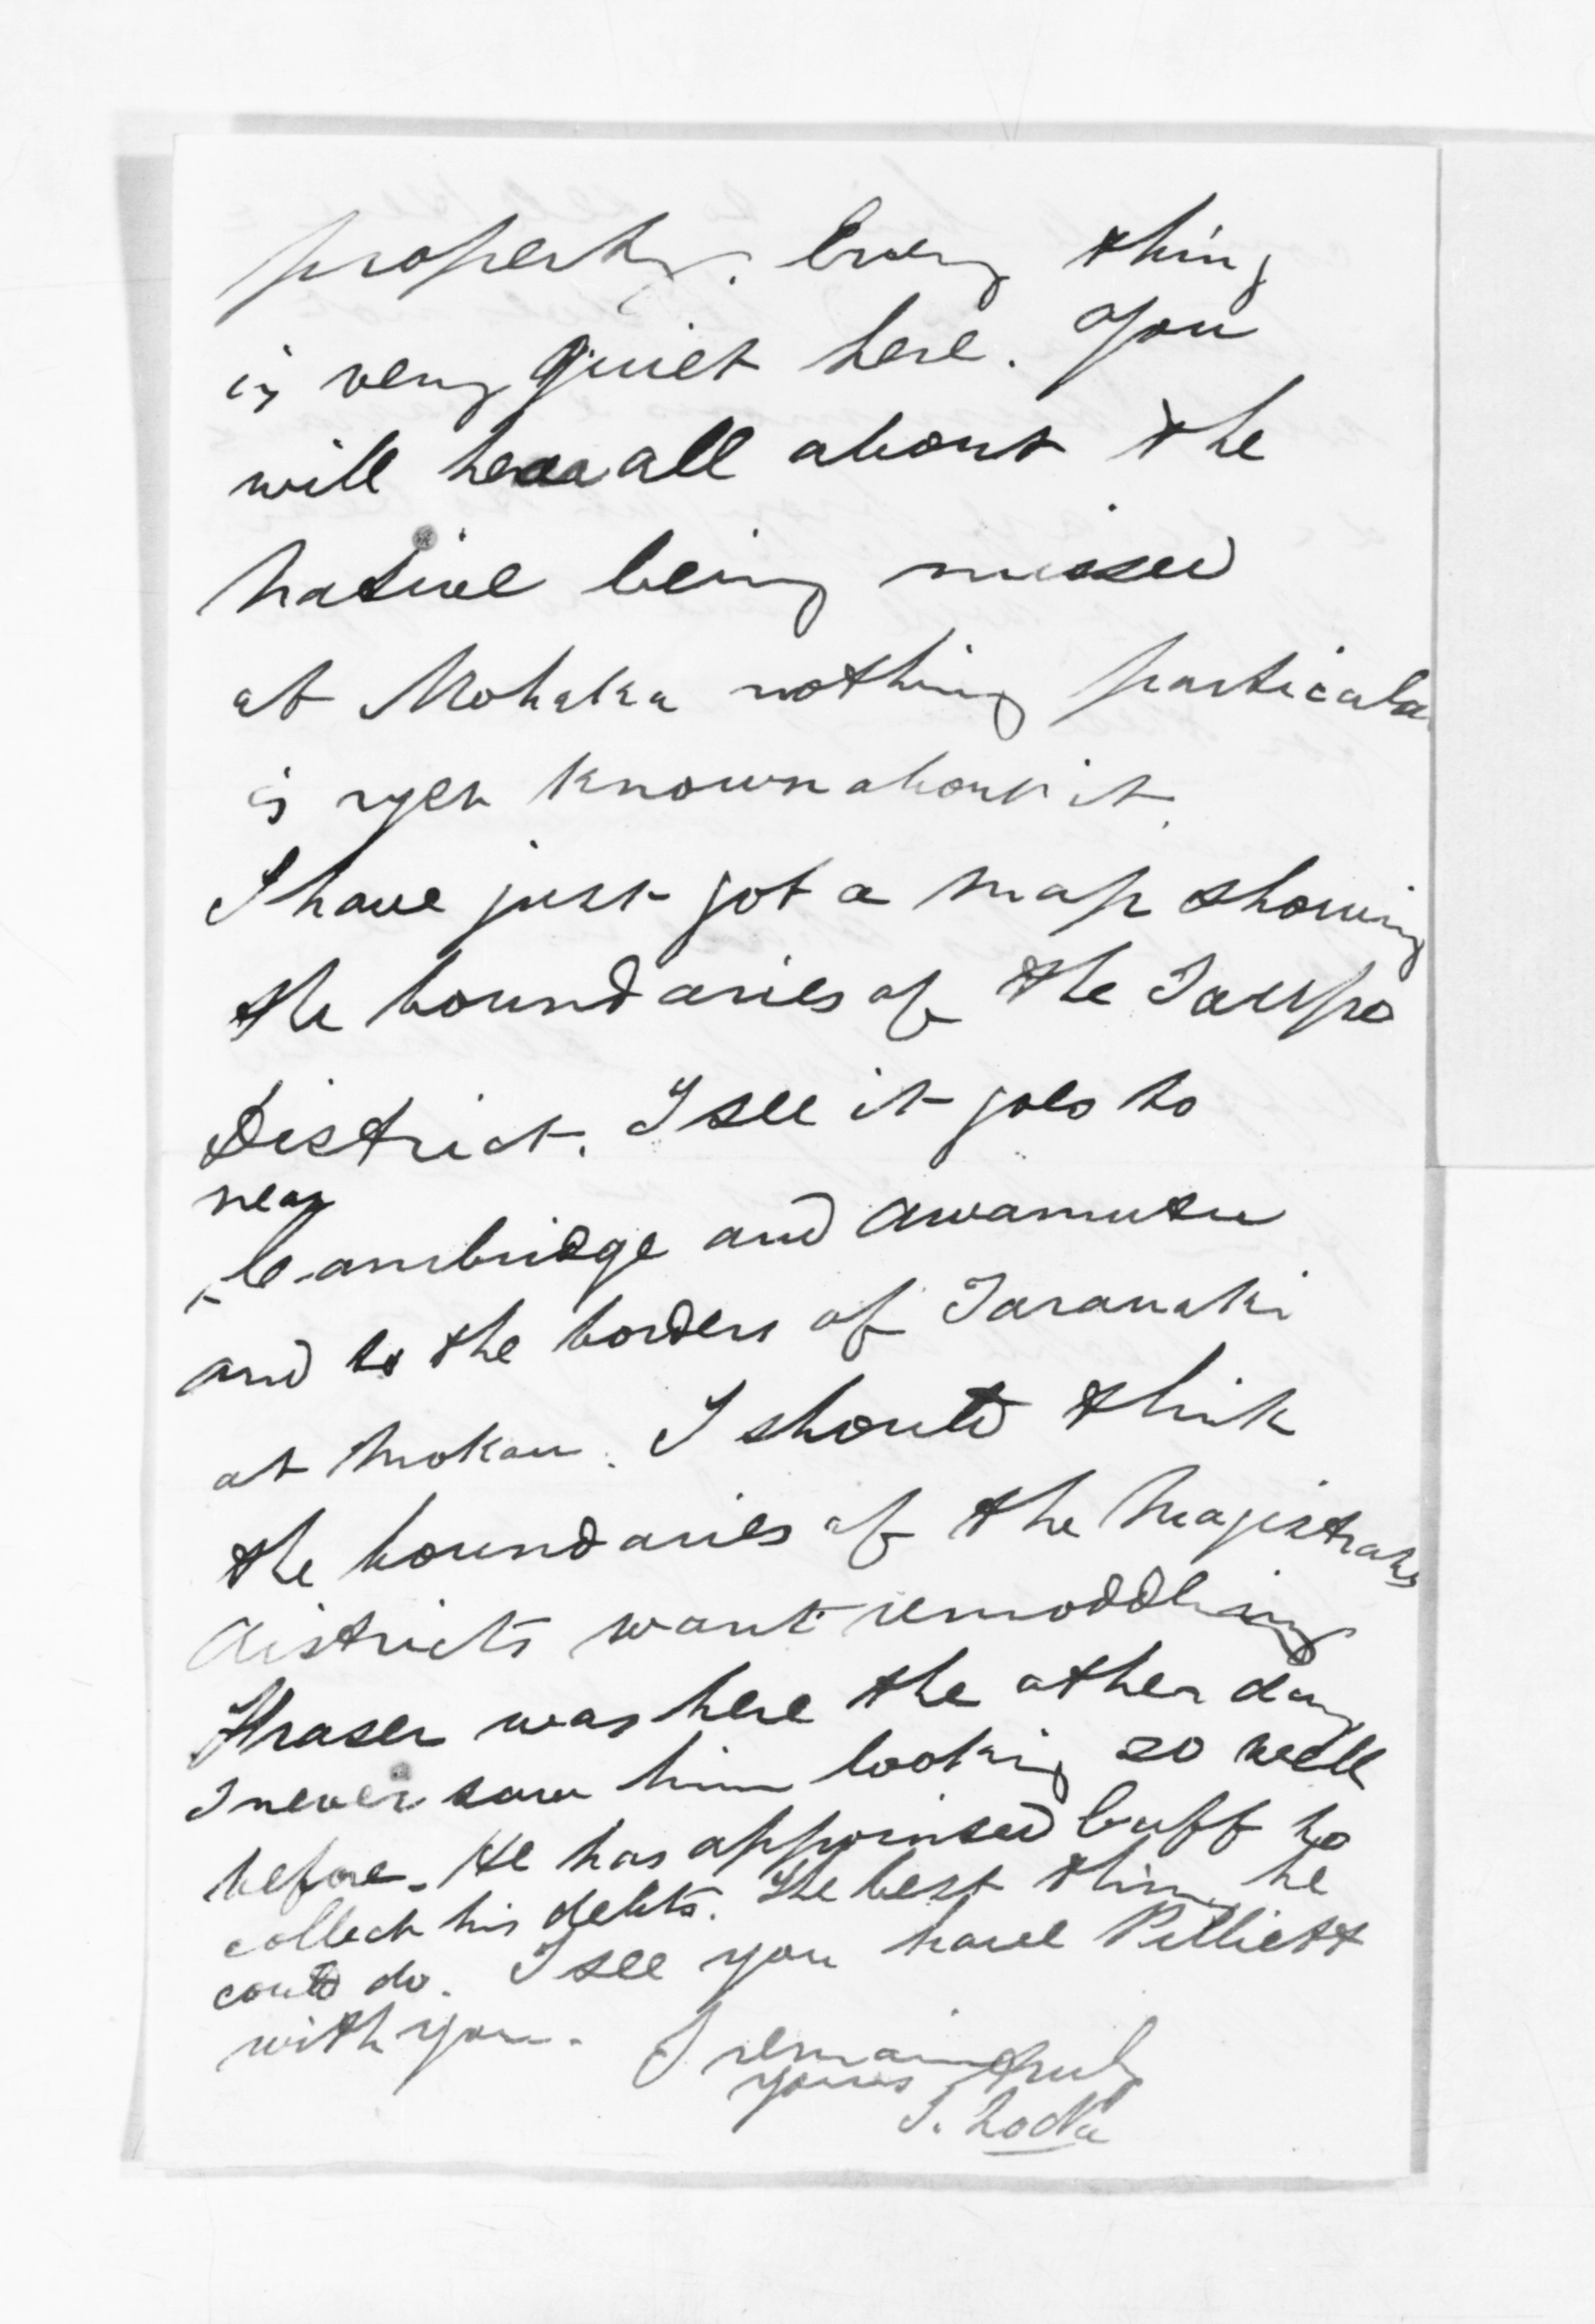 property. Every thing
is very quiet here. You
will hear all about the
Native being missed
at Mohaka nothing particular
is yet known about it.
I have just got a map showing
the boundaries of the Taupo
District. I see it goes to
near
Cambridge and Awamutu
and to the borders of Taranaki
at Mokau. I should think
the boundaries of the Magistrates
districts want remoddling
Fraser was here the other day
I never saw him looking so well
before. He has appointed Cuff to
collect his debts. The best thing he
could do. I see you have Pelliett
with you. I remain truly
yours